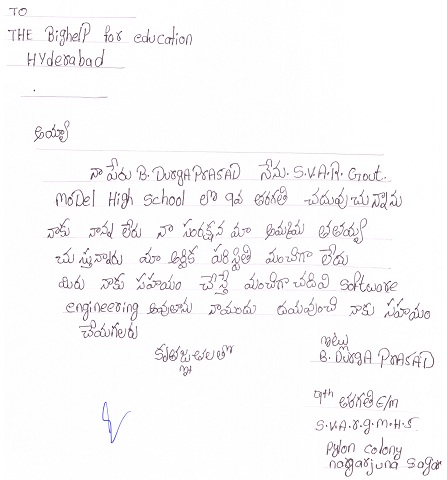 TO
THE BighelP for education
HYderabad
అయ్యా
నా పేరు B. DURGA PRASAD నేను. S.V.A.R. Govt.
MODel High School లో 9వ తరగతి చదువుచున్నాను
నాకు నాన్న లేరు నా సంరక్షన మా అమ్మమ్మ తాతయ్య
చుస్తున్నారు మా ఆర్థిక పరిస్థితి మంచిగా లేదు
మీరు నాకు సహాయం చేస్తే మంచిగా చదివి software
engineering అవుతాను నాయందు దయవుంచి నాకు సహాయం
చేయగలరు
కృతజ్ఞతలతో
ఇట్లు
B. DURGA PRASAD
9th తరగతి E/M
S.V.A.r.g.M.H.S
Pylon colony
nargarjuna sagar